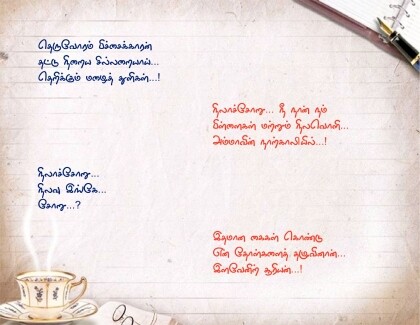 தெருவோரம் பிச்சைக்காரன்
தட்டு நிறைய சில்லறையாய்...
தெறிக்கும் மழைத் துளிகள்...!
நிலாச்சோறு... நீ நான் நம்
பிள்ளைகள் மற்றும் நிலவொளி...
அம்மாவின் நாற்காலியில்...!
நிலாச்சோறு...
நிலவு இங்கே...
சோறு...?
இதமான கைகள் கொண்டு
என் தோள்களைத் தழுவினான்...
இளவேனிற் சூரியன்...!